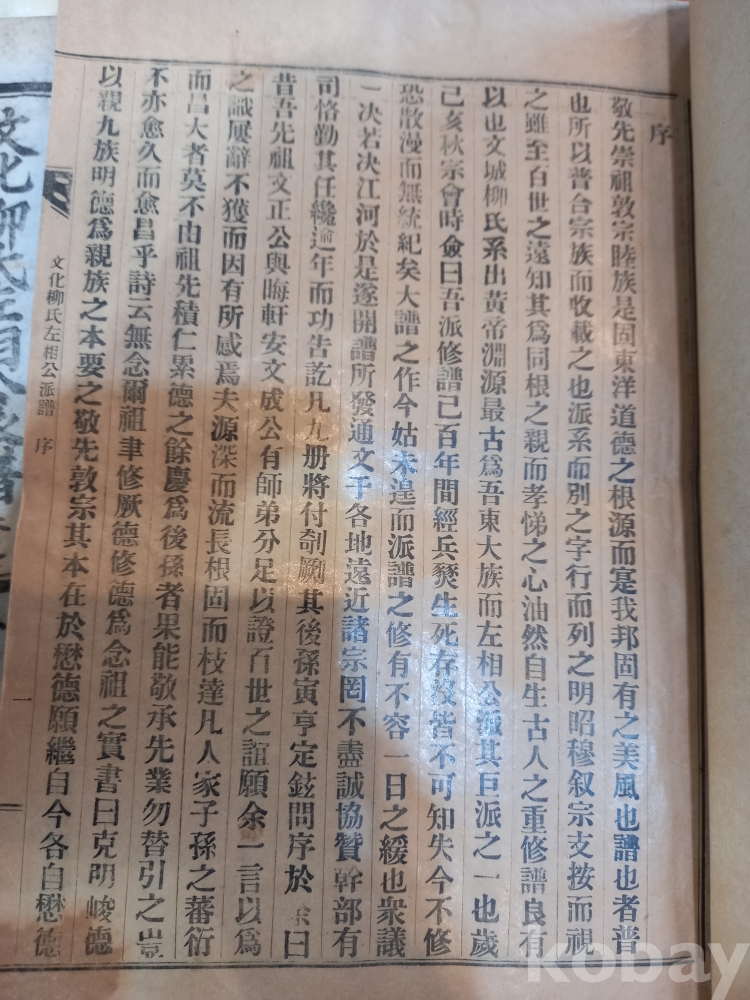 序
敬先崇祖敦宗睦族是固東洋道德之根源而寔我邦固有之美風也譜也者普
也所以普台宗族而收載之也派系而別之字行而列之明昭穆叙宗支按而視
之雖至百世之遠知其爲同根之親而孝悌之心油然自生古人之重修譜良有
以也文城柳氏系出黃帝淵源最古爲吾東大族而左相公派其巨派之一也歲
己亥秋宗會時僉曰吾派修譜己百年間經兵燹生死存歿皆不可知失今不修
恐散漫而無統紀矣大譜之作今姑未遑而派譜之修有不容一日之緩也衆議
一决若决江河於是遂開譜所發通文于各地遠近諸宗罔不盡誠協贊幹部有
司恪勤其任纔逾年而功告訖凡九册將付剞劂其後孫寅亨定鉉問序於余曰
昔吾先祖文正公與晦軒安文成公有師弟分足以證百世之誼願余一言以爲
之識屢辭不獲而因有所感焉夫源深而流長根固而枝達凡人家子孫之蕃衍
而昌大者莫不由祖先積仁累德之餘慶爲後孫者果能敬承先業勿替引之豈
不亦愈久而愈昌乎詩云無念爾祖聿修厥德修德爲念祖之實書曰克明峻德
以親九族明德爲親族之本要之敬先敦宗其本在於懋德願繼自今各自懋德
文化柳氏左相公派譜 序 一
文化柳氏左相公派譜
kobay